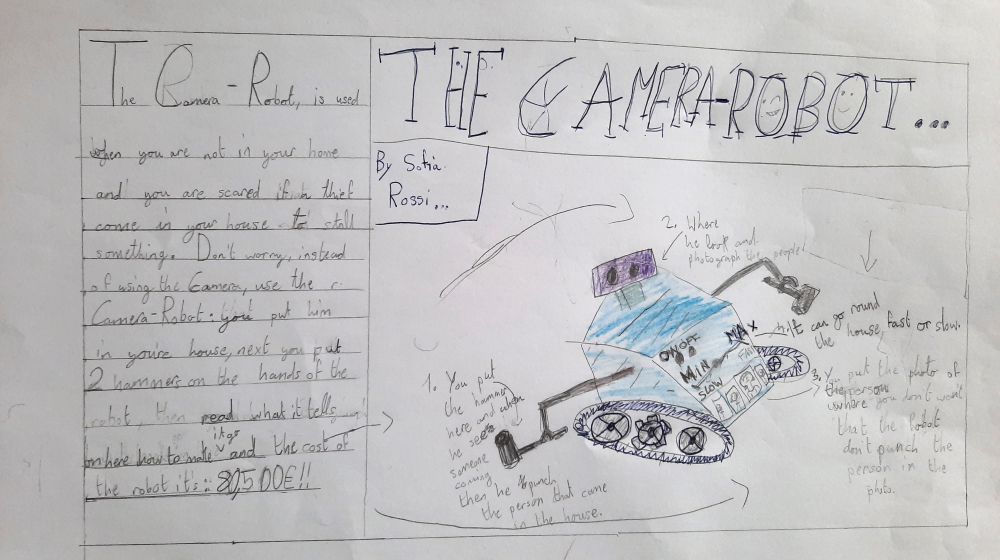 The Camera-Robot, is used
when you are not in your home
and you are scared if a thief
come in your house to stall
something. Don't worry, instead
of using the Camera, use the
Camera-Robot: you put him
in you're house, next you put
2 hammers on the hands of the
robot then read what it tells
on here how to make it go and the cost of
the robot it's:
THE CAMERA-ROBOT...
By Sofia
Rossi...
2. Where
he look and
photograph the people!
ON OFF
MAX
MIN
SLOW
It can go round
the house, fast or slow.
1. You put
the hammer
here and when
he sees
someone
coming
then he punch
the person that came
in the house.
3. You put the photo of
the person
where you don't want
that the Robot
don't punch the
person in the
photo.